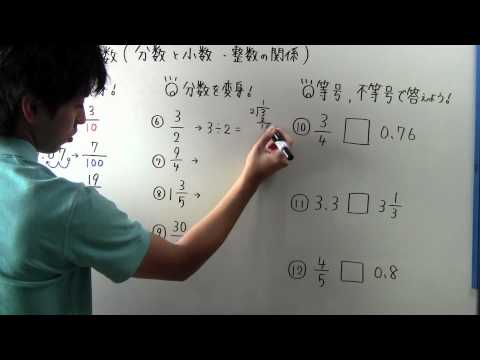 数(分数と小数・整数の関係)
身!
3/10
→ 7/100
19
分数を変身!
⑥ 3/2 → 3÷2=
2)3
1
⑦ 9/4 →
⑧ 1 3/5 →
⑨ 30
等号,不等号で答えよう!
⑩ 3/4 □ 0.76
⑪ 3.3 □ 3 1/3
⑫ 4/5 □ 0.8